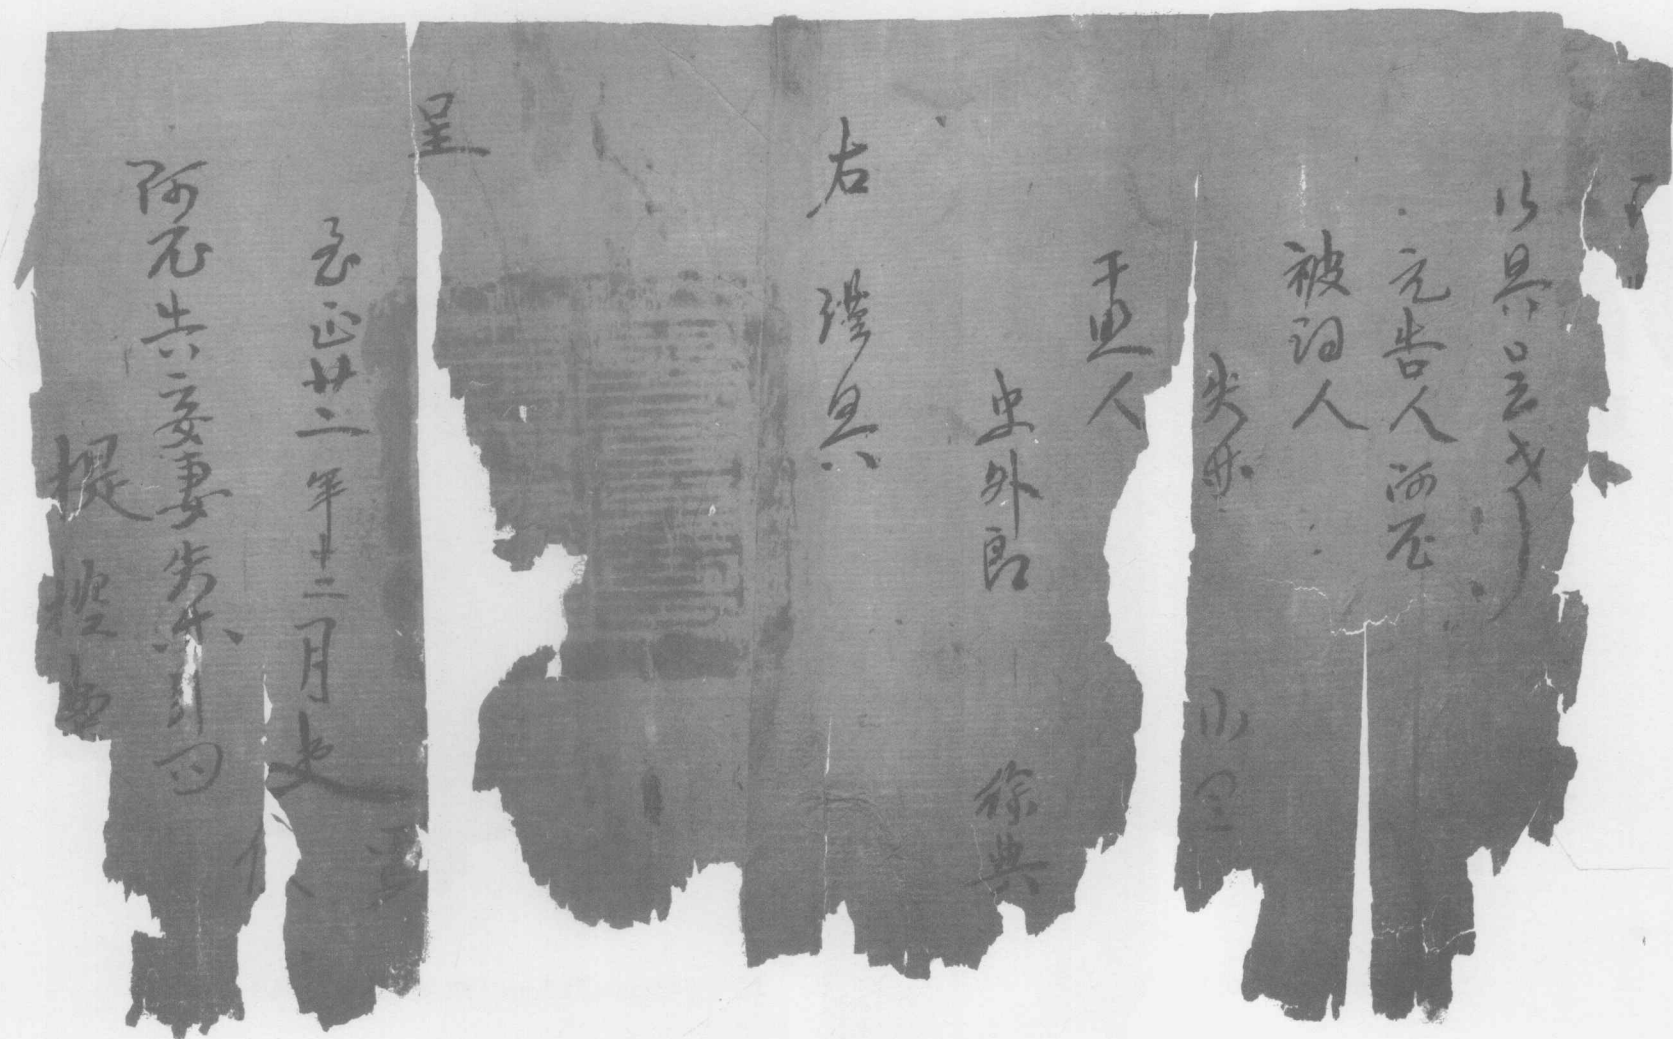 元告人阿兀
被詞人
失林 小閆
干照人
史外郎 徐典
右謹具
呈
至正廿二年十二月吏
阿兀告妾妻失林引问
提控案